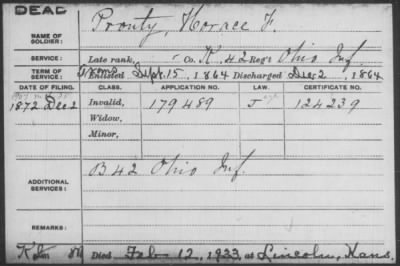 DEAD
NAME OF SOLDIER: Prouty, Horace F.
SERVICE: Late rank, Co. K, 42 Reg't Ohio Inf.
TERM OF SERVICE: Enlisted Sept. 15, 1864 Discharged Dec 2, 1864
DATE OF FILING. CLASS. APPLICATION NO. LAW. CERTIFICATE NO.
1872 Dec 2 Invalid, 179489 J 124239
Widow,
Minor,
ADDITIONAL SERVICES: B 42 Ohio Inf.
REMARKS:
Died Feb 12, 1933, at Lincoln, Kans.